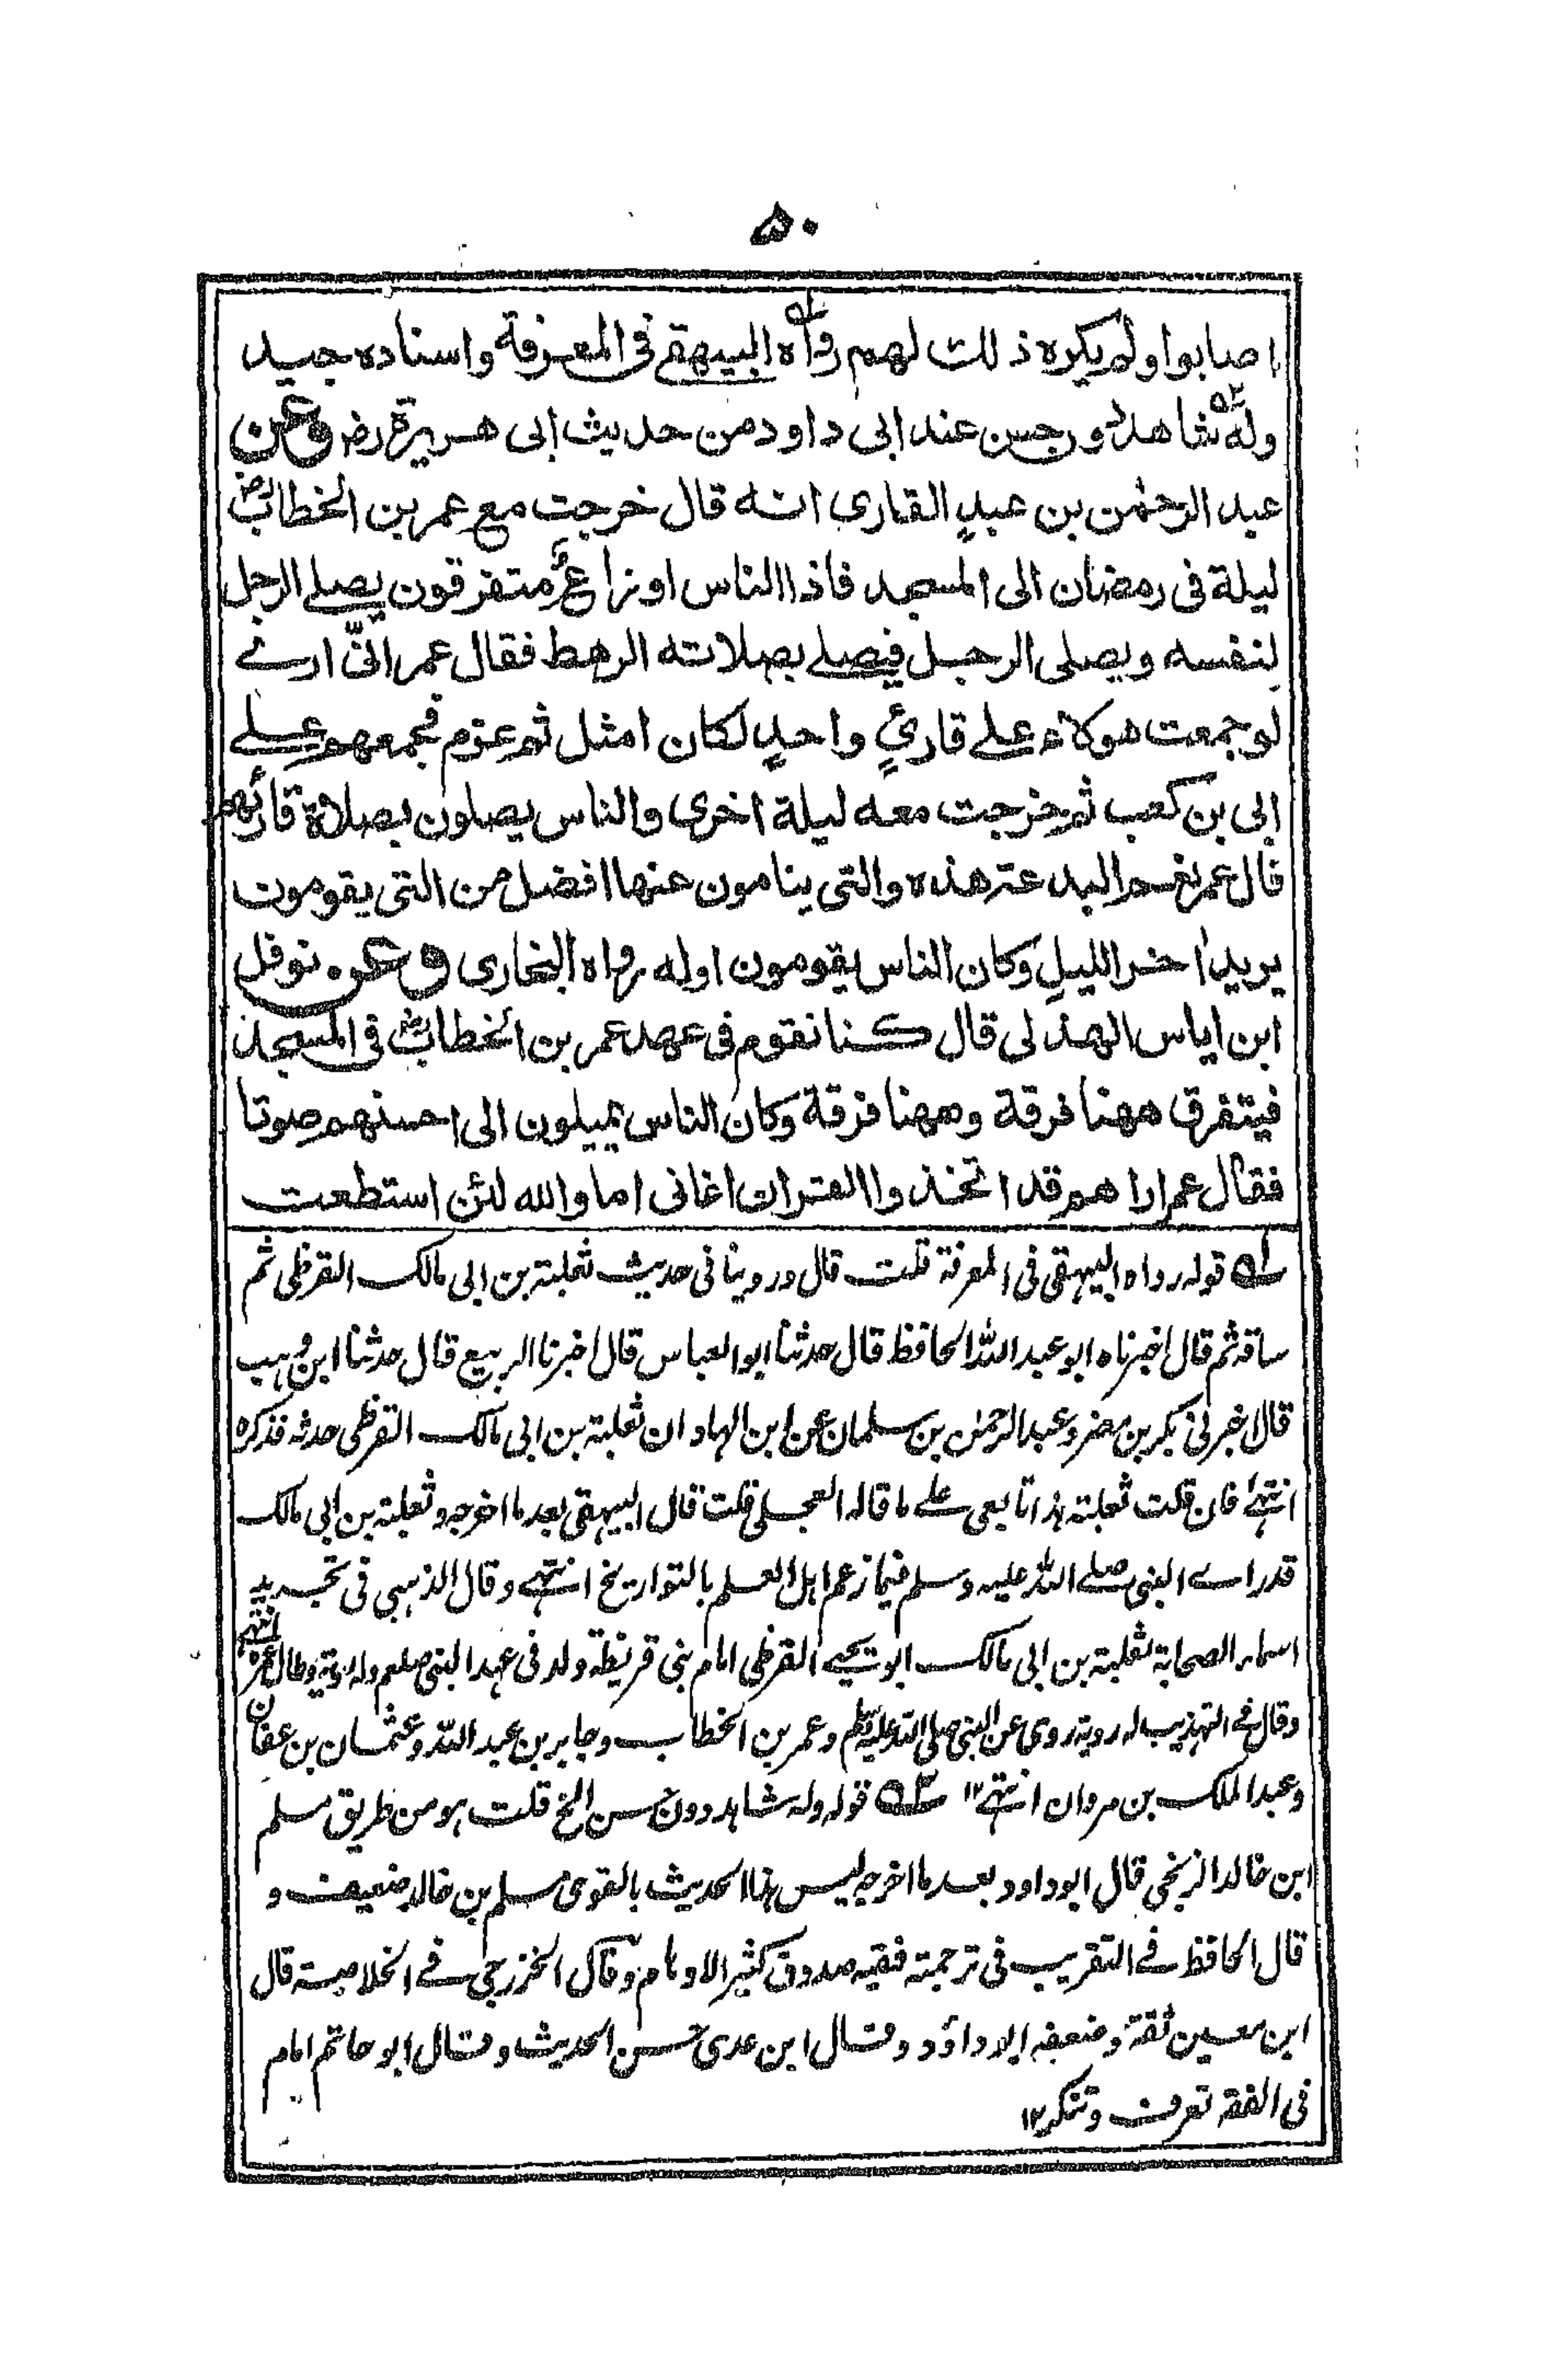 ۵۰
اصابوا ولم يكره ذلك لهم رواه البيهقي في المعرفة واسناده جيد
وله شاهد دون حسن عند ابى داود من حديث ابى هريرة رض وعن
عبد الرحمٰن بن عبدٍ القارى انه قال خرجت مع عمر بن الخطاب رض
ليلة فى رمضان الى المسجد فاذا الناس اوزاعٌ متفرقون يصلے الرجل
لنفسه ويصلى الرجل فيصلے بصلاته الرهط فقال عمر انّى ارے
لو جمعت هؤلاء علے قارئٍ واحدٍ لكان امثل ثم عزم فجمعهم علے
ابى بن كعب ثم خرجت معه ليلة اخرى والناس يصلون بصلاة قارئهم
قال عمر نعم البدعة هذه والتى ينامون عنها افضل من التى يقومون
يريد اخر الليل وكان الناس يقومون اوله رواه البخارى وعن نوفل
ابن اياس الهذلى قال كنا نقوم فى عهد عمر بن الخطاب رض فى المسجد
فيتفرق ههنا فرقة وههنا فرقة وكان الناس يميلون الى احسنهم صوتا
فقال عمر اراهم قد اتخذوا القران اغانى اما والله لئن استطعت
۱ قوله رواه البيهقى فى المعرفة قلت قال وروينا فى حديث ثعلبة بن ابى مالك القرظى ثم
ساقه ثم قال اخبرناه ابو عبد الله الحافظ قال حدثنا ابو العباس قال اخبرنا الربيع قال حدثنا ابن وہب
قال اخبرنى بكر بن مضر وعبد الرحمٰن بن سلمان عن ابن الهاد ان ثعلبة بن ابى مالك القرظى حدثه فذكره
انتہىٰ فان قلت ثعلبة ہذا تابعى علے ما قاله العجلى قلت قال البيهقى بعد ما اخرجه وثعلبة بن ابى مالك
قد راے النبى صلے الله عليه وسلم فيما زعم اہل العلم بالتواريخ انتہے وقال الذہبى فى تجريد
اسماء الصحابة ثعلبة بن ابى مالك ابو يحيے القرظى امام بنى قريظة ولد فى عہد النبى صلعم وله رؤية وطال عمره انتہے
وقال فے التہذيب له روية روى عن النبى صلى الله عليه وسلم وعمر بن الخطاب وجابر بن عبد الله وعثمان بن عفان
وعبد الملك بن مروان انتہے ۱۲ ۲ قوله وله شاہد دون حسن الخ قلت ہو من طريق مسلم
ابن خالد الزنجى قال ابو داود بعد ما اخرجه ليس ہذا الحديث بالقوى مسلم بن خالد ضعيف و
قال الحافظ فے التقريب فى ترجمته فقيه صدوق كثير الاوہام وقال الخزرجى فے الخلاصة قال
ابن معين ثقة وضعفه ابو داؤد وقال ابن عدى حسن الحديث وقال ابو حاتم امام
فى الفقه تعرف وتنكر ۱۲